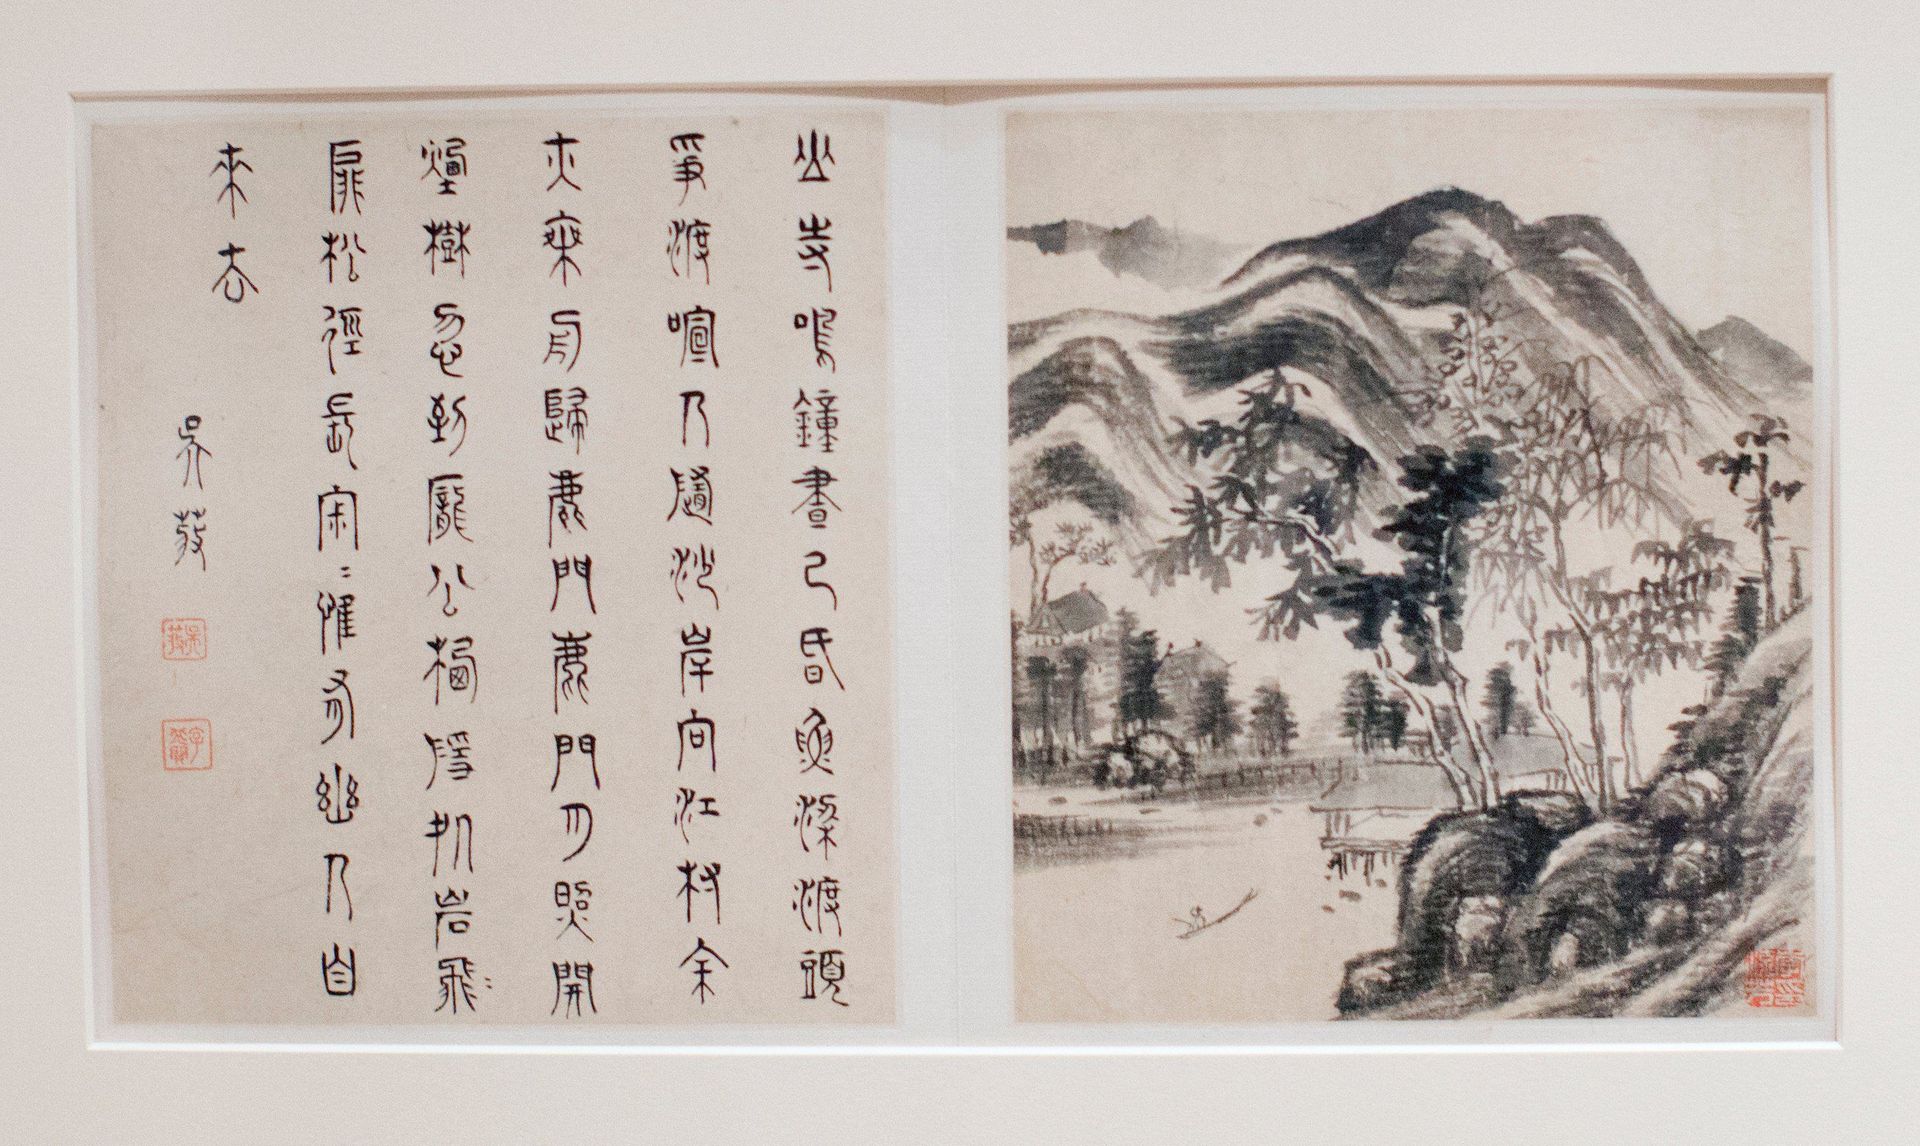 山寺鳴鐘晝已昏魚梁渡頭
爭渡喧人隨沙岸向江村余
亦乘舟歸鹿門鹿門月照開
煙樹忽到龐公棲隱処岩飛
扉松徑長寂〻惟有幽人自
來去
吳